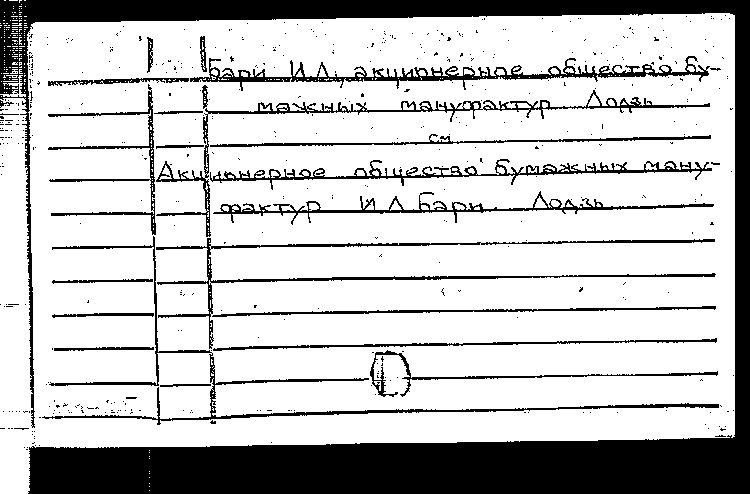 Бари И.Л., акционерное общество бу-
мажных мануфактур Лодзь
см
Акционерное общество бумажных ману-
фактур И.Л Бари Лодзь